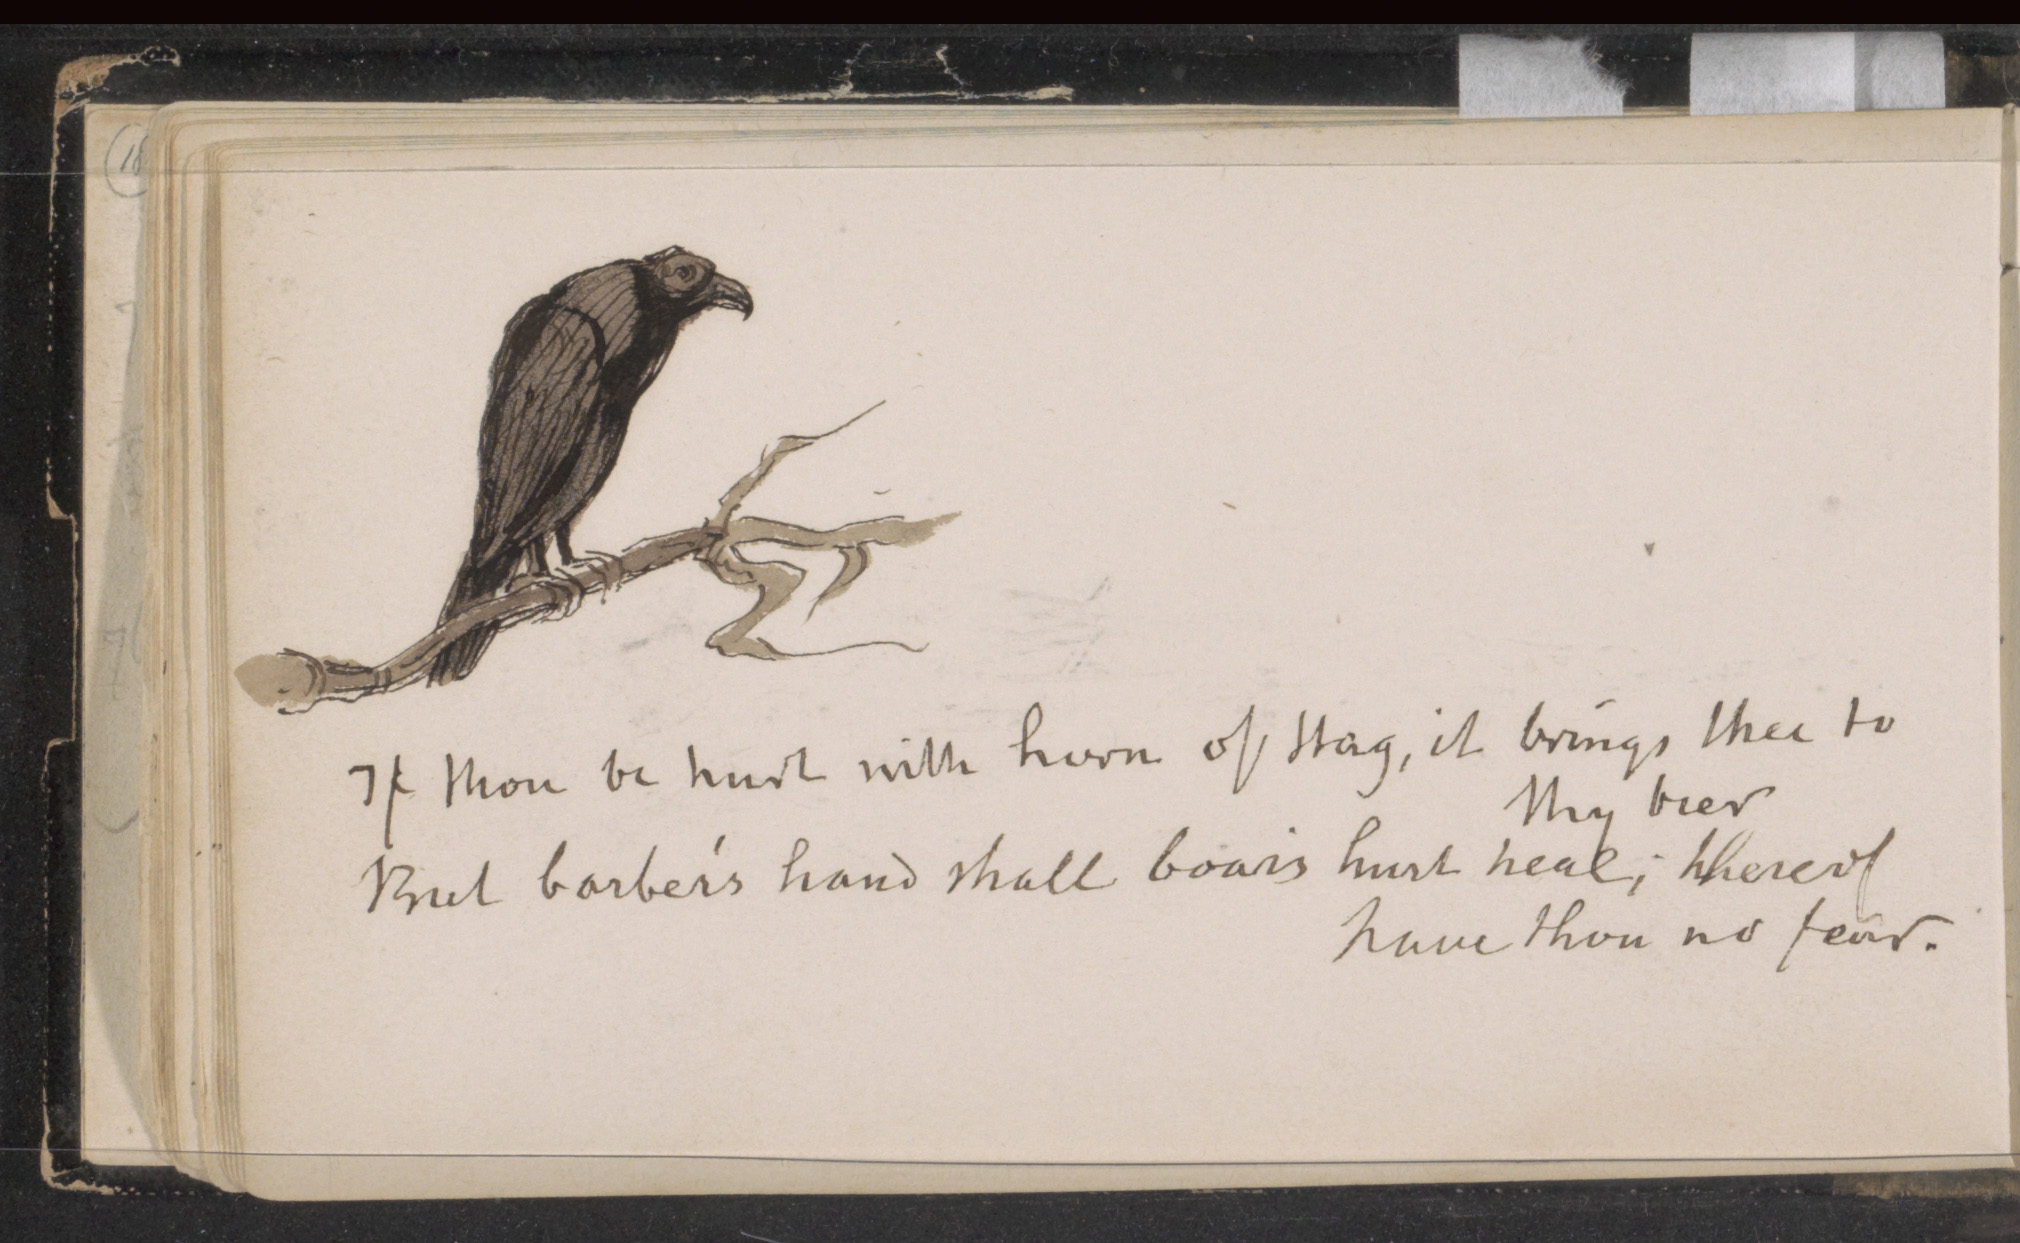 (18
If thou be hurt with horn of stag, it brings thee to
thy bier
But barber's hand shall boar's hurt heal; thereof
have thou no fear.